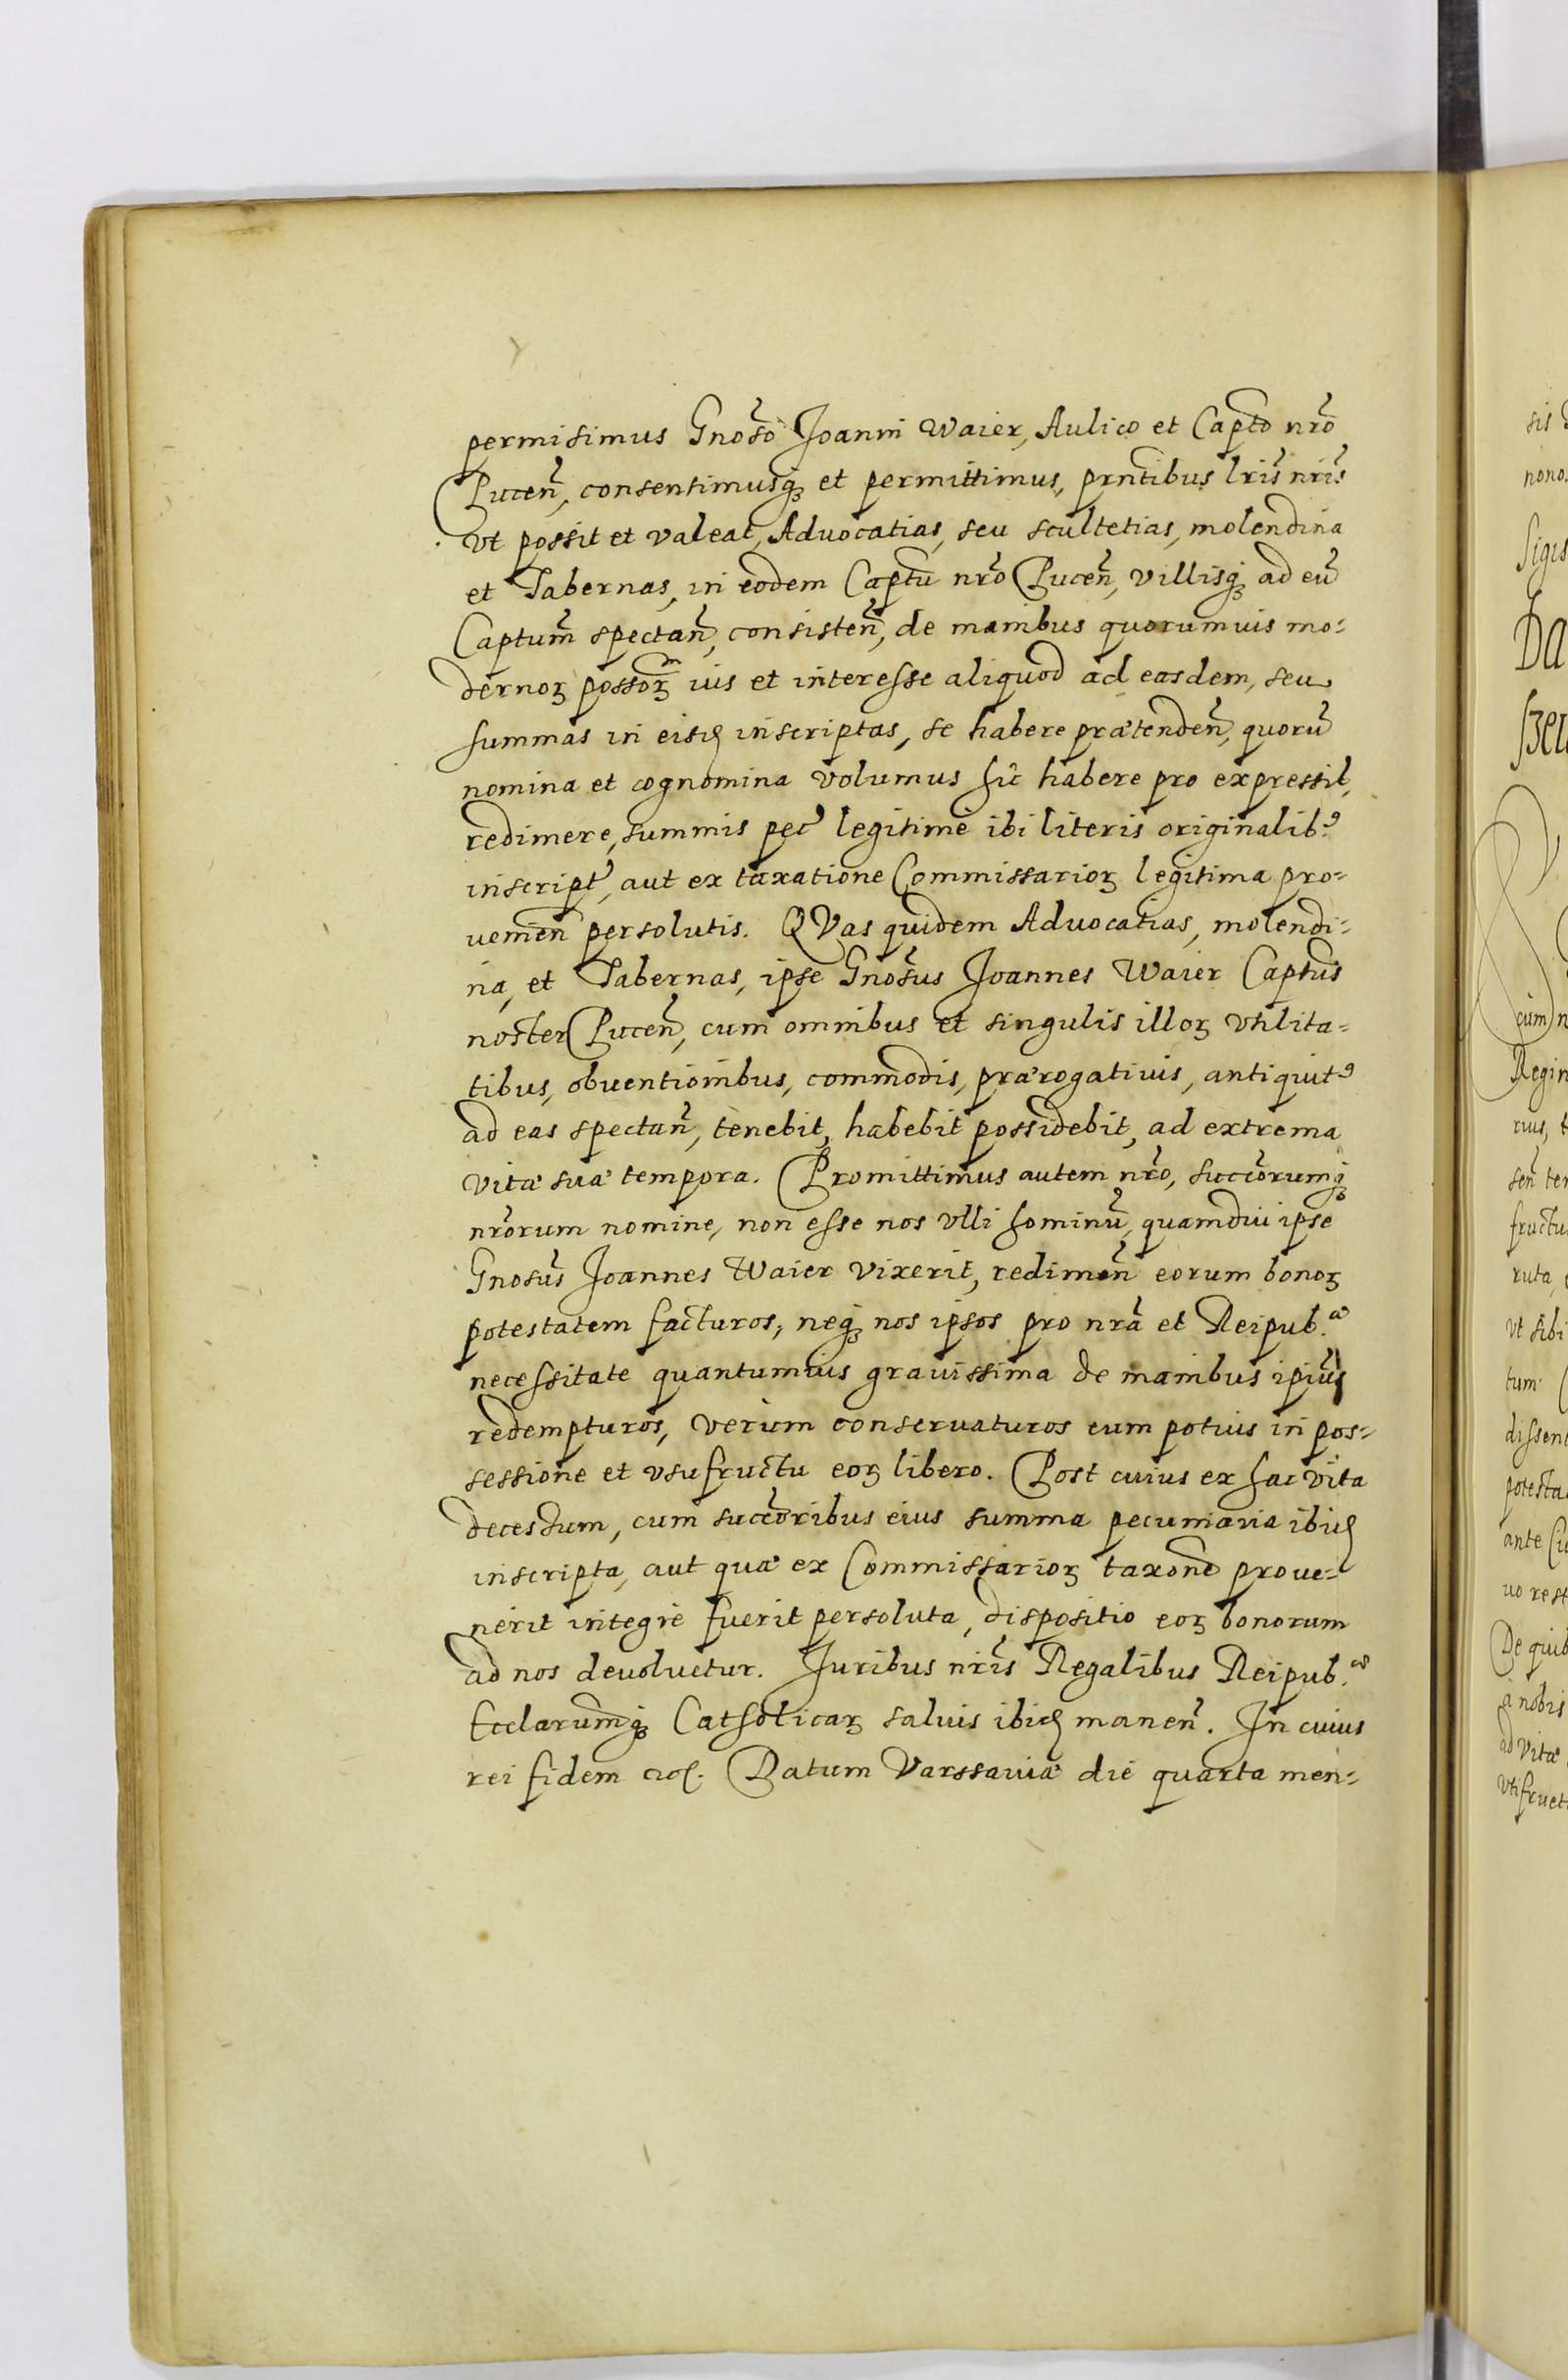 permisimus Gnoso Joanni Waier, Aulico et Capto nro
Pucen, consentimusq et permittimus, prntibus lris nris
vt possit et valeat, Aduocatias, seu scultetias, molendina
et Tabernas, in eodem Captu nro Pucen, villisq ad eu
Captum spectan, consisten, de manibus quorumuis mo=
dernoꝝ possorꝝ ius et interesse aliquod ad easdem, seu
summas in eisd inscriptas, se habere prætenden, quoru
nomina et cognomina volumus hic habere pro expressis,
redimere, summis pec legitime ibi literis originalib9
inscript, aut ex taxatione Commissarioꝝ legitima pro=
uenien persolutis. QVas quidem Aduocatias, molendi=
na, et Tabernas, ipse Gnosus Joannes Waier Captus
noster Pucen, cum omnibus et singulis illoꝝ vtilita=
tibus, obuentionibus, commodis, prærogatiuis, antiquit9
ad eas spectan, tenebit, habebit possidebit, ad extrema
vitæ suæ tempora. Promittimus autem nro, succorumq
nrorum nomine, non esse nos vlli hominu, quamdiu ipse
Gnosus Joannes Waier vixerit, redimen eorum bonoꝝ
potestatem facturos, neq nos ipsos pro nra et Reipub.æ
necessitate quantumuis grauissima de manibus ipius
redempturos, verum conseruaturos eum potius in pos=
sessione et vsufructu eoꝝ libero. Post cuius ex hac vita
decessum, cum succoribus eius summa pecuniaria ibid
inscripta, aut quæ ex Commissarioꝝ taxone proue=
nerit integre fuerit persoluta, dispositio eoꝝ bonorum
ad nos deuoluetur. Juribus nris Regalibus Reipub.æ
Ecclarumq Catholicaꝝ saluis ibid manen. In cuius
rei fidem Datum Varssauiæ die quarta men=